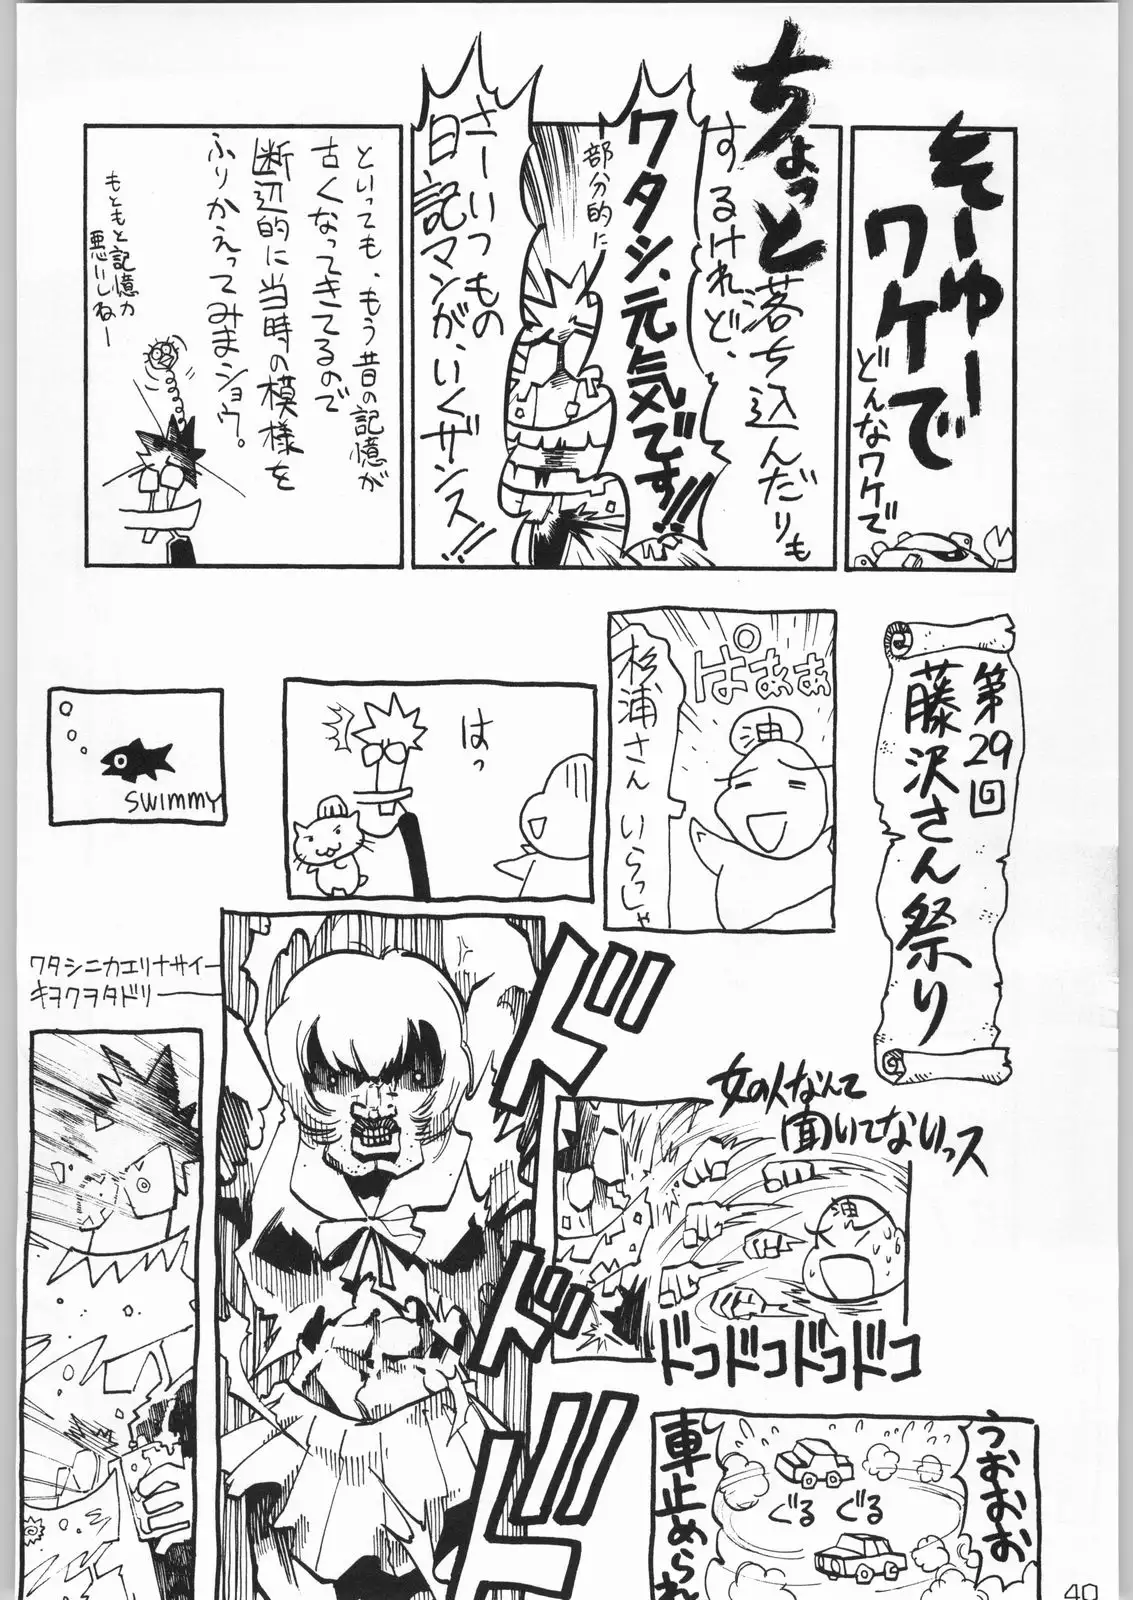 そーゆー
ワケで
どんなワケで
ちょっと
落ち込んだりも
するけれど、
ワタシ、元気です!!
部分的に
さーいつもの
日記マンが、いくザンス!!
といっても、もう昔の記憶が
古くなってきてるので
断辺的に当時の模様を
ふりかえってみまショウ。
もともと記憶力
悪いしねー
第29回
藤沢さん祭り
ぱあぁぁ
油
杉浦さん いらっしゃ
はっ
SWIMMY
ワタシニカエリナサイー
キヲクヲタドリ
ドドド
女の人なんて
聞いてないっス
油
ドコドコドコドコ
うおおお
ぐる
ぐる
車止められ
40